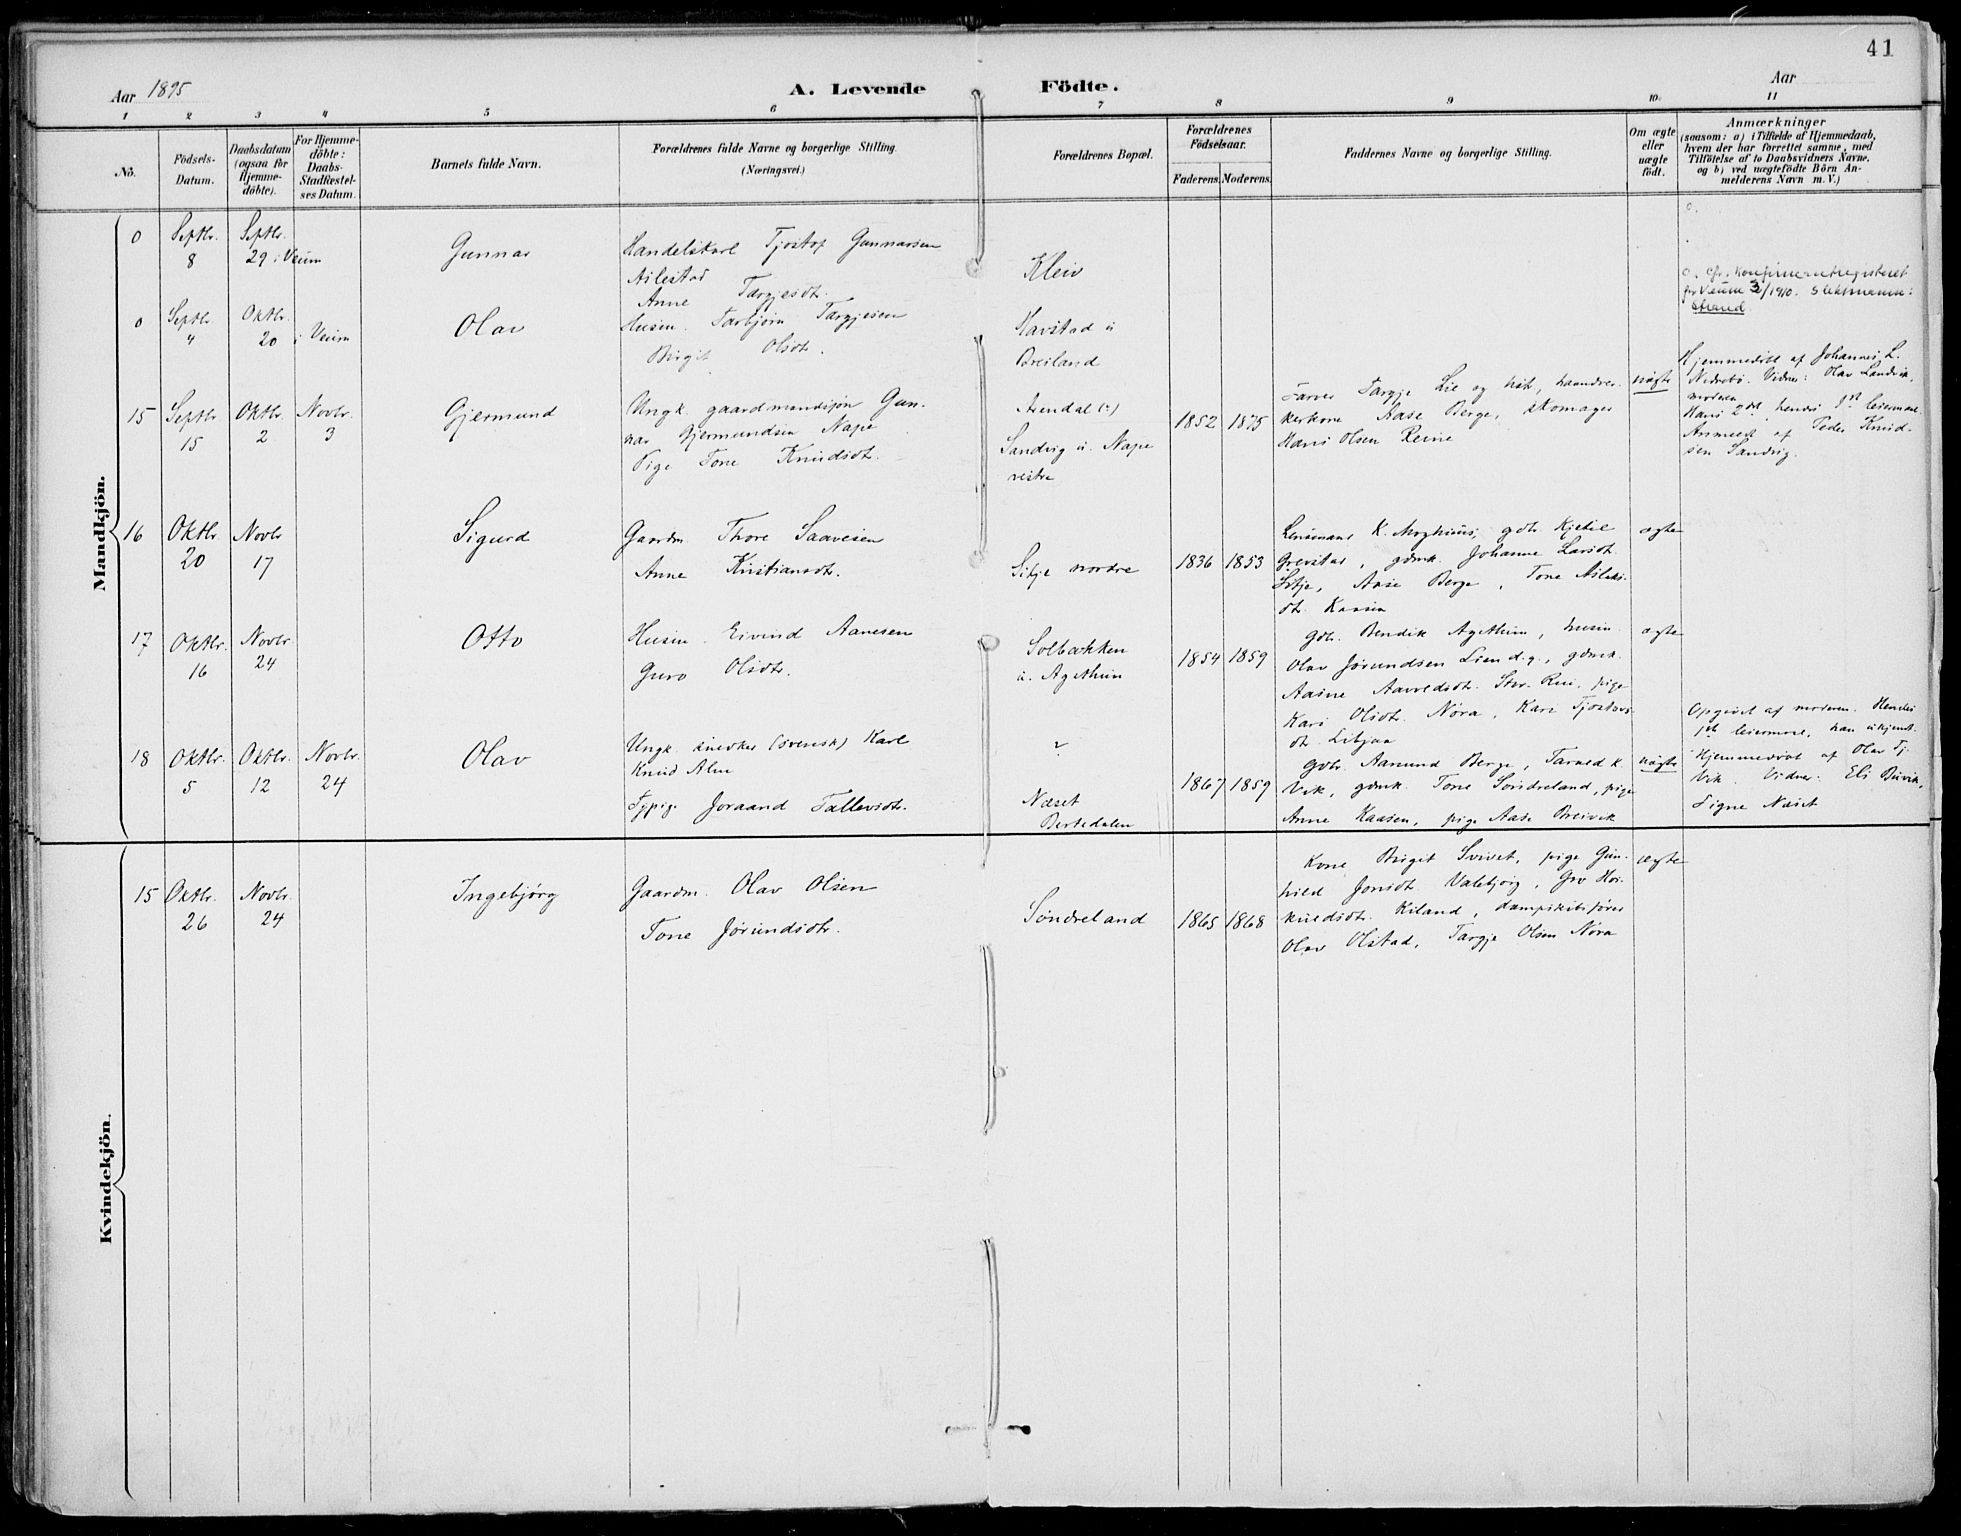 41
Aar 1895
A. Levende Födte.
Aar
1 2 3 4 5 6 7 8 9 10 11
No.
Födsels-
Datum.
Daabsdatum
(ogsaa for
Hjemme-
döbte).
For Hjemme-
döbte:
Daabs-
Stadfæstel-
ses Datum.
Barnets fulde Navn.
Forældrenes fulde Navne og borgerlige Stilling
(Næringsvei.)
Forældrenes Bopæl.
Forældrenes
Födselsaar.
Faderens. Moderens.
Faddernes Navne og borgerlige Stilling.
Om ægte
eller
uægte
födt.
Anmærkninger
(saasom: a) i Tilfælde af Hjemmedaab,
hvem der har forrettet samme, med
Tilföielse af to Daabsvidners Navne.
og b) ved uægtefödte Börn An-
melderens Navn m. V.)
Mandkjön.
0 Septbr. 8
Septbr. 29 i Veum
Gunnar
Handelskarl Tjostof Gunnarsen
Ailestad
Anne Targjesdt.
Kleiv
o. cfr. Konfirmantregisteret
for Veum 3/1910. Slektsnavn:
Strand
0 Septbr. 4
Oktbr. 20 i Veum
Olav
Husm. Tarbjørn Targjesen
Birgit Olsdt.
Havstad u.
Breiland
15 Septbr 15
Oktbr. 2
Novbr. 3
Gjermund
Ungk. gaardmandssøn Gun-
nar Gjermundsen Nape
Pige Tone Knudsdt.
Arendal (?)
Sandvig u. Nape
vestre
1852 1875
Farver Targje Lie og hst, haandver-
kerkone Aase Berge, skomager
Hans Olsen Reine
uægte
Hjemmedøbt af Johannes L.
Nedrebø. Vidner: Olav Landvik,
moderen
Hans 2det hendes 1st leiermaal.
Anmeldt af Peder Knud-
sen Sandvig.
16 Oktbr. 20
Novbr 17
Sigurd
Gaardm. Thore Saavesen
Anne Kristiansdt.
Sitje nordre
1836 1853
Lensmand K. Moghuus, gdbr. Kjetil
Grevstad, gdmk. Johanne Larsdt.
Sitje, Aase Berge, Tone Aslaks-
dt. Kaasen
ægte
17 Oktbr. 16
Novbr. 24
Otto
Husm. Eivind Aanesen
Guro Olsdt.
Solbækken
u. Agethun
1854 1859
Gdbr. Bendik Agethun, husm.
Olav Jørundsen Lien d.y., gdmk.
Aasne Aavredsdt. Stor. Rui, pige
Kari Olsdt. Nøra, Kari Tjostovs-
dt. Libjaa
ægte
18 Oktbr. 5
Oktbr. 12
Novbr. 24
Olav
Ungk. snedker (svensk) Karl
Knud Alm
Tjpige Joraand Tallevsdt.
?
Næset
Bertedalen
1867 1859
Gdbr. Aamund Berge, Tarald K.
Vik, gdmk. Tone Søndreland, pige
Anne Kaasen, pige Aase Breivik
uægte
Opgivet af moderen. Hendes
1st leiermaal, han ukjendt.
Hjemmedøbt af Olav Tj.
Vik. Vidner: Eli Buvik,
Signe Næset
Kvindekjön.
15 Oktbr. 26
Novbr. 24
Ingebjørg
Gaardm. Olav Olsen
Tone Jørundsdt.
Søndreland
1865 1868
Kone Birgit Svivet, pige Gun-
hild Jonsdt. Valebjørg, Gro Hos-
kuldsdt. Kiland, dampskibsfører
Olav Olstad, Targje Olsen Nøra
ægte